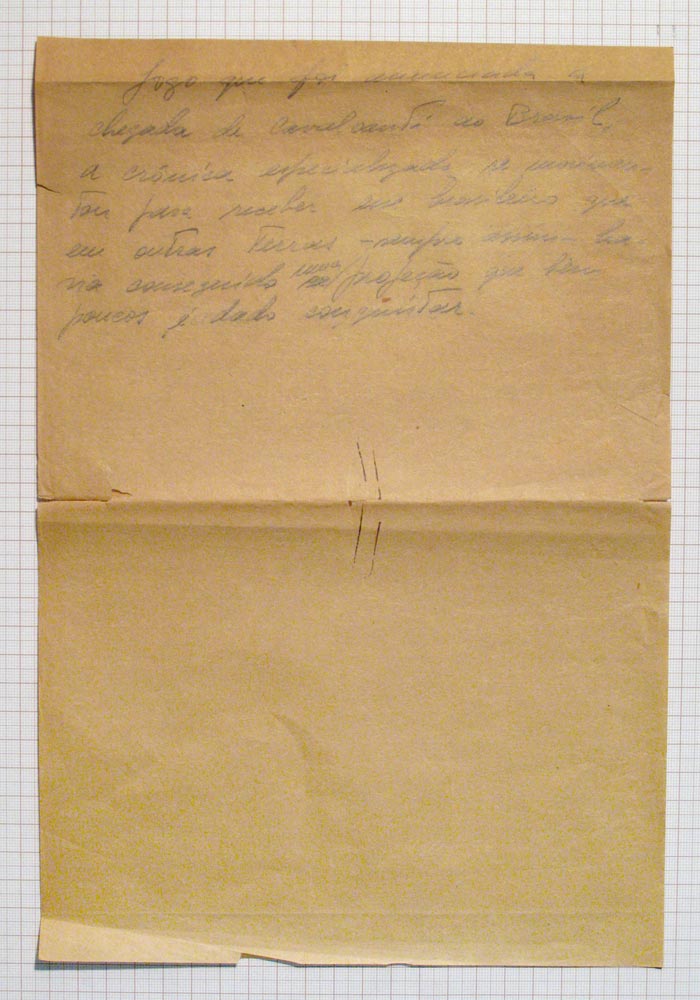 Logo que foi anunciada a
chegada de Cavalcanti ao Brasil,
a crônica especializada se movimen-
tou para receber esse brasileiro que
em outras terras – sempre assim – ha-
via conseguido uma projeção que bem
poucos é dado conquistar.